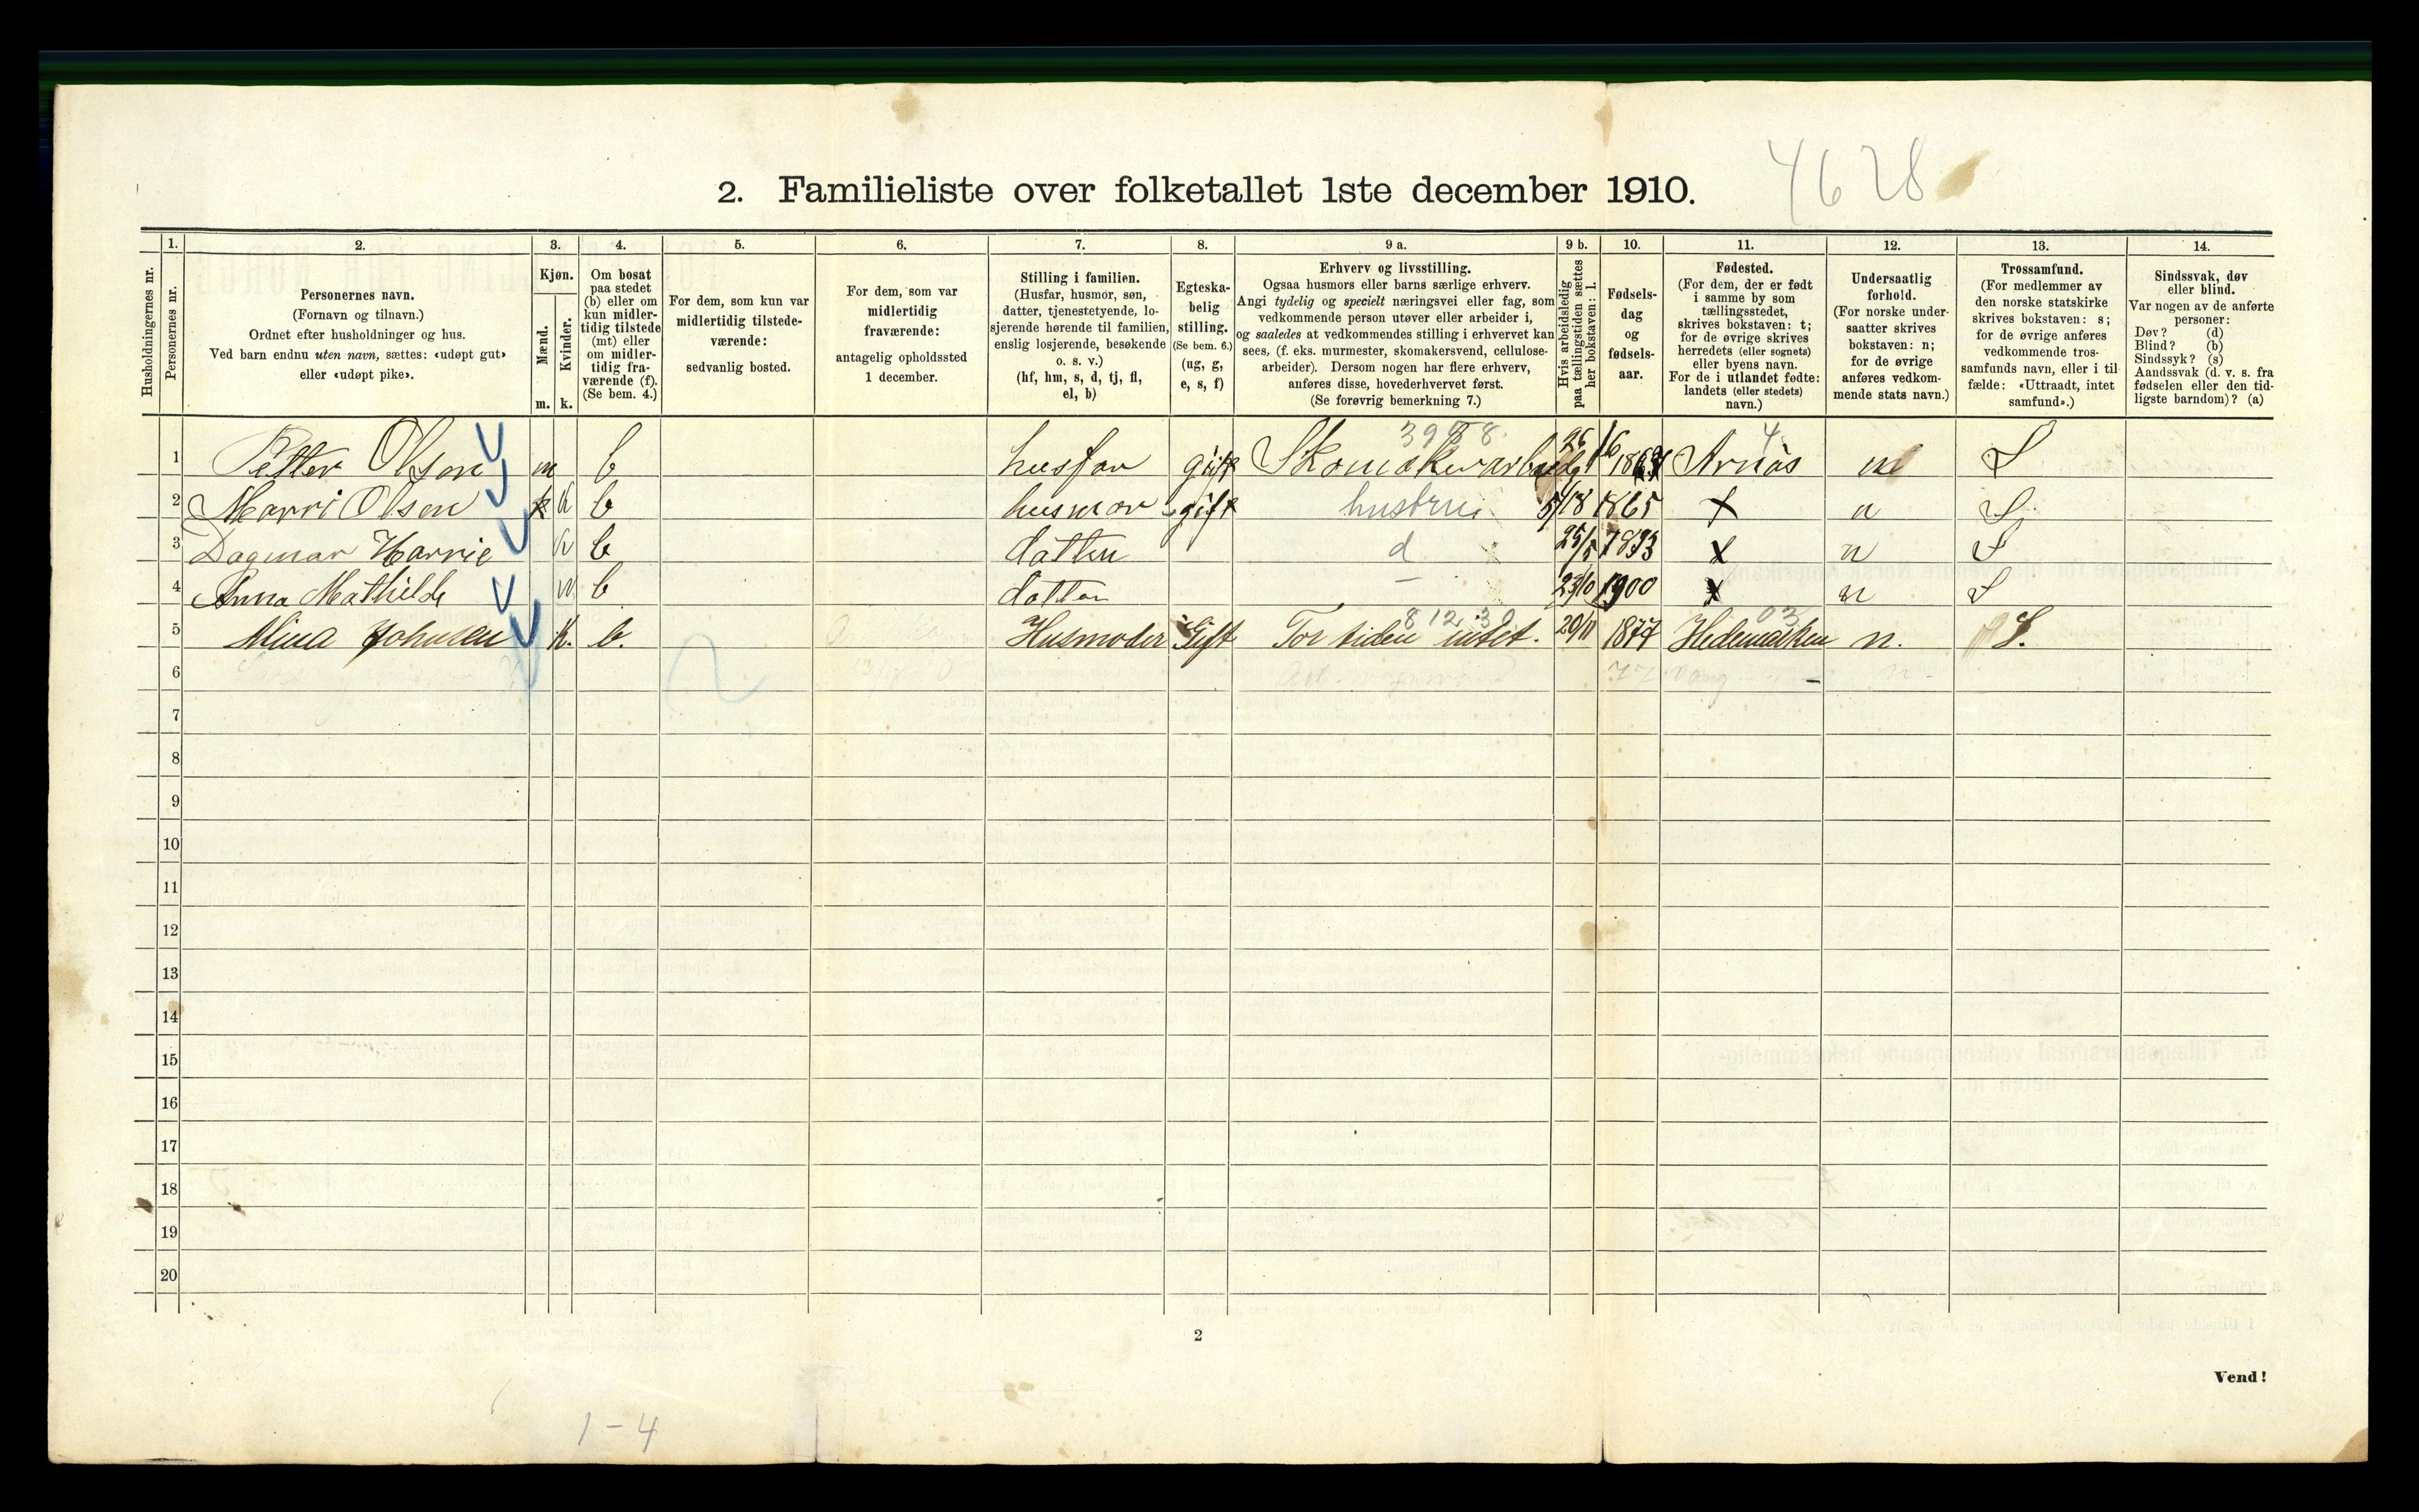 4628
2. Familieliste over folketallet 1ste december 1910.
1. 2. 3. 4. 5. 6. 7. 8. 9 a. 9 b. 10. 11. 12. 13. 14.
Husholdningernes nr.
Personernes nr.
Personernes navn.
(Fornavn og tilnavn.)
Ordnet efter husholdninger og hus.
Ved barn endnu uten navn, sættes: «udøpt gut»
eller «udøpt pike».
Kjøn.
Mænd.
Kvinder.
m. k.
Om bosat
paa stedet
(b) eller om
kun midler-
tidig tilstede
(mt) eller
om midler-
tidig fra-
værende (f).
(Se bem. 4.)
For dem, som kun var
midlertidig tilstede-
værende:
sedvanlig bosted.
For dem, som var
midlertidig
fraværende:
antagelig opholdssted
1 december.
Stilling i familien.
(Husfar, husmor, søn,
datter, tjenestetyende, lo-
sjerende hørende til familien,
enslig losjerende, besøkende
o. s. v.)
(hf, hm, s, d, tj, fl,
el, b)
Egteska-
belig
stilling.
(Se bem. 6.)
(ug, g,
e, s, f)
Erhverv og livsstilling.
Ogsaa husmors eller barns særlige erhverv.
Angi tydelig og specielt næringsvei eller fag, som
vedkommende person utøver eller arbeider i,
og saaledes at vedkommendes stilling i erhvervet kan
sees, (f. eks. murmester, skomakersvend, cellulose-
arbeider). Dersom nogen har flere erhverv,
anføres disse, hovederhvervet først.
(Se forøvrig bemerkning 7.)
Hvis arbeidsledig
paa tællingstiden sættes
her bokstaven: l.
Fødsels-
dag
og
fødsels-
aar.
Fødested.
(For dem, der er født
i samme by som
tællingsstedet,
skrives bokstaven: t;
for de øvrige skrives
herredets (eller sognets)
eller byens navn.
For de i utlandet fødte:
landets (eller stedets)
navn.)
Undersaatlig
forhold.
(For norske under-
saatter skrives
bokstaven: n;
for de øvrige
anføres vedkom-
mende stats navn.)
Trossamfund.
(For medlemmer av
den norske statskirke
skrives bokstaven: s;
for de øvrige anføres
vedkommende tros-
samfunds navn, eller i til-
fælde: «Uttraadt, intet
samfund».)
Sindssvak, døv
eller blind.
Var nogen av de anførte
personer:
Døv? (d)
Blind? (b)
Sindssyk? (s)
Aandssvak (d. v. s. fra
fødselen eller den tid-
ligste barndom)? (a)
1 Petter Olsen m b husfar gift Skomakerarbeid Arnäs n S
2 Marri Olsen k b husmor gift hustru 5/18 1865 n S
3 Dagmar Harrie k b datter d 25/5 1893 n S
4 Anna Mathilde b datter – 23/10 1900 n S
5 Mina Johnsen K. b. Husmoder Gift 81230 For tiden intet. 20/11 1877 03 Hedemarken n. S.
6
7
8
9
10
11
12
13
14
15
16
17
18
19
20
2
Vend!
1-4